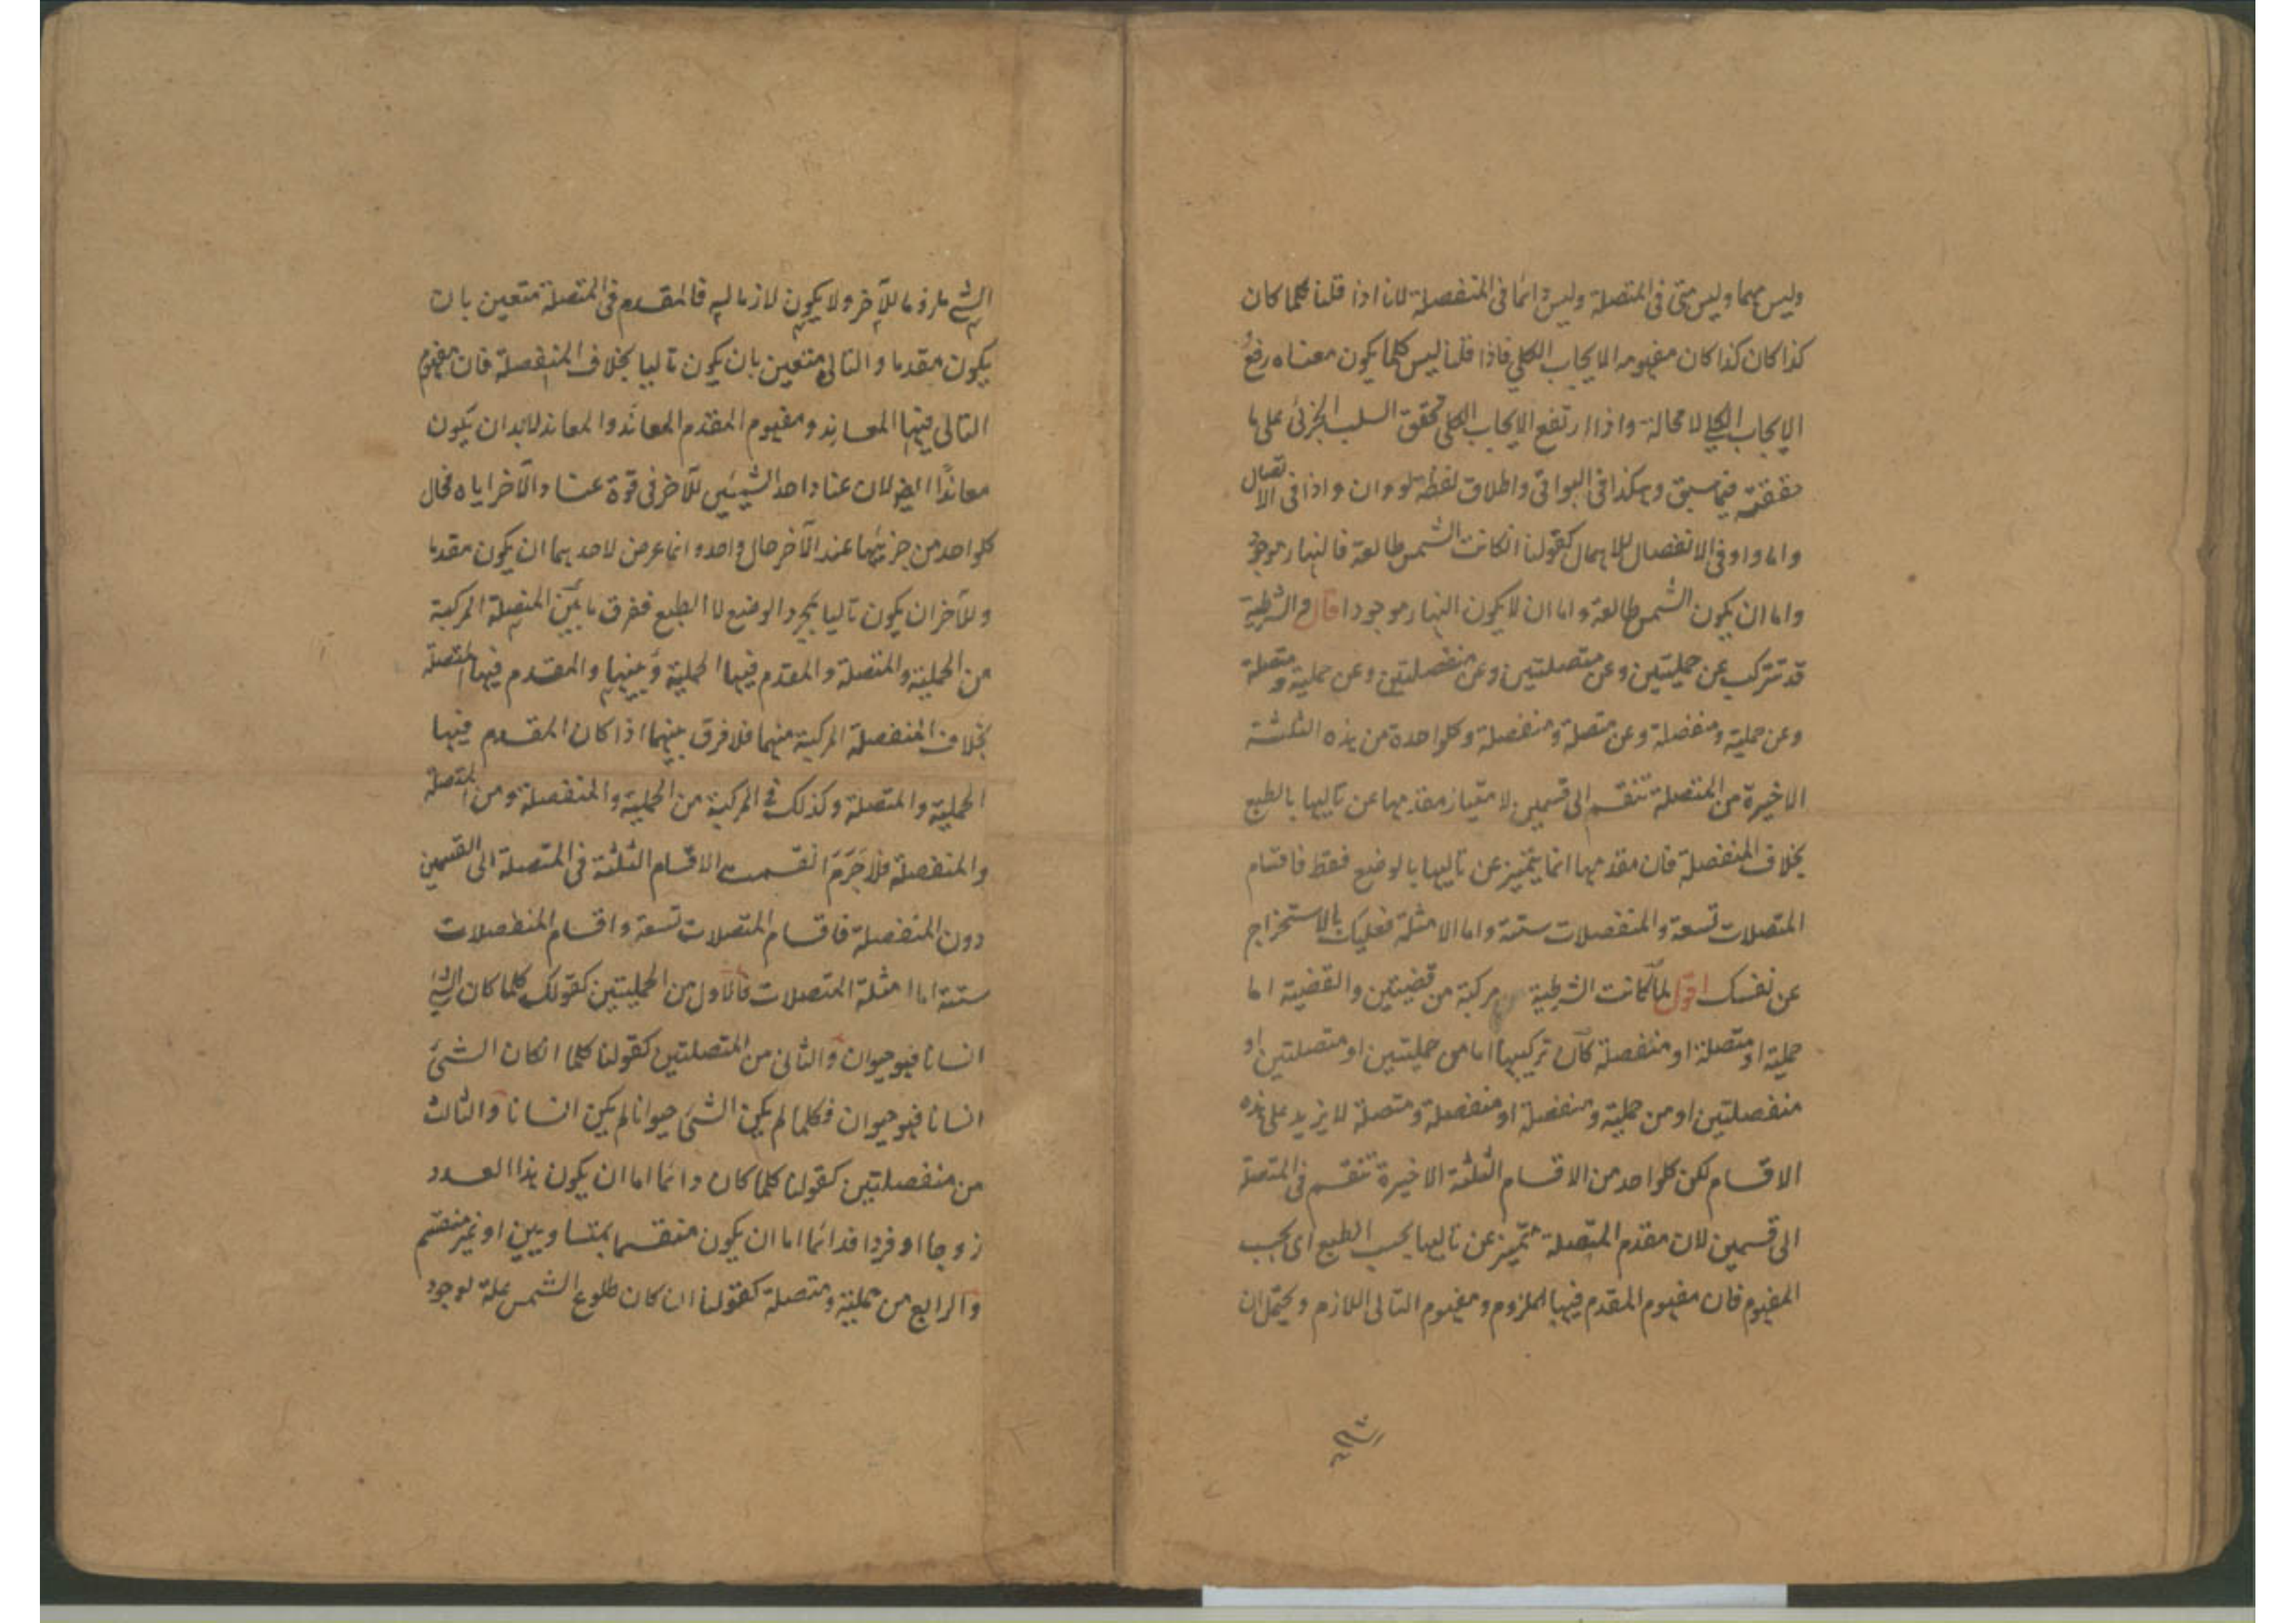 وليس مهما وليس متى فى المتصلة وليس دائما فى المنفصلة لانا اذا قلنا كلما كان
كذا كان كذا كان مفهومه الايجاب الكلى فاذا قلنا ليس كلما يكون معناه رفع
الايجاب الكلى لا محالة واذا ارتفع الايجاب الكلى تحقق السلب الجزئى على ما
حققته فيما سبق وهكذا فى البواقى واطلاق لفظة لو وان واذا فى الاتصال
واما واو فى الانفصال للاهمال كقولنا انكانت الشمس طالعة فالنهار موجود
واما ان يكون الشمس طالعة واما ان لا يكون النهار موجودا قال والشرطية
قد تتركب عن حمليتين وعن متصلتين وعن منفصلتين وعن حملية ومتصلة
وعن حملية ومنفصلة وعن متصلة ومنفصلة وكلواحدة من هذه الثلثة
الاخيرة من المتصلة تنقسم الى قسمين لامتياز مقدمها عن تاليها بالطبع
بخلاف المنفصلة فان مقدمها انما يتميز عن تاليها بالوضع فقط فاقسام
المتصلات تسعة والمنفصلات ستة واما الامثلة فعليك بالاستخراج
عن نفسك اقول لما كانت الشرطية مركبة من قضيتين والقضية اما
حملية او متصلة او منفصلة كان تركيبها اما من حمليتين او متصلتين او
منفصلتين او من حملية ومنفصلة او منفصلة ومتصلة لا يزيد على هذه
الاقسام لكن كلواحد من الاقسام الثلثة الاخيرة تنقسم فى المتصلة
الى قسمين لان مقدم المتصلة متميز عن تاليها بحسب الطبع اى بحسب
المفهوم فان مفهوم المقدم فيها الملزوم ومفهوم التالى اللازم ويحتمل ان
الشئ ملزوما للآخر ولا يكون لازما له فالمقدم فى المتصلة متعين بان
يكون مقدما والتالى متعين بان يكون تاليا بخلاف المنفصلة فان مفهوم
التالى فيها المعاند ومفهوم المقدم المعاند والمعاند لابد ان يكون
معاندا ايضا لان عناد احد الشيئين للآخر فى قوة عناد الآخر اياه فحال
كلواحد من جزئيها عند الآخر حال واحد وانما عرض لاحدهما ان يكون مقدما
وللآخر ان يكون تاليا بمجرد الوضع لا الطبع ففرق ما بين المتصلة المركبة
من الحملية والمتصلة والمقدم فيها الحملية وبينها والمقدم فيها المتصلة
بخلاف المنفصلة المركبة منهما فلا فرق بينهما اذا كان المقدم فيها
الحملية والمتصلة وكذلك فى المركبة من الحملية والمنفصلة ومن المتصلة
والمنفصلة فلا جرم انقسمت الاقسام الثلثة فى المتصلة الى القسمين
دون المنفصلة فاقسام المتصلات تسعة واقسام المنفصلات
ستة اما امثلة المتصلات فالاول من الحمليتين كقولك كلما كان الشئ
انسانا فهو حيوان والثانى من المتصلتين كقولنا كلما انكان الشئ
انسانا فهو حيوان فكلما لم يكن الشئ حيوانا لم يكن انسانا والثالث
من منفصلتين كقولنا كلما كان دائما اما ان يكون هذا العدد
زوجا او فردا فدائما اما ان يكون منقسما بمتساويين او غير منقسم
والرابع من حملية ومتصلة كقولنا ان كان طلوع الشمس علة لوجود